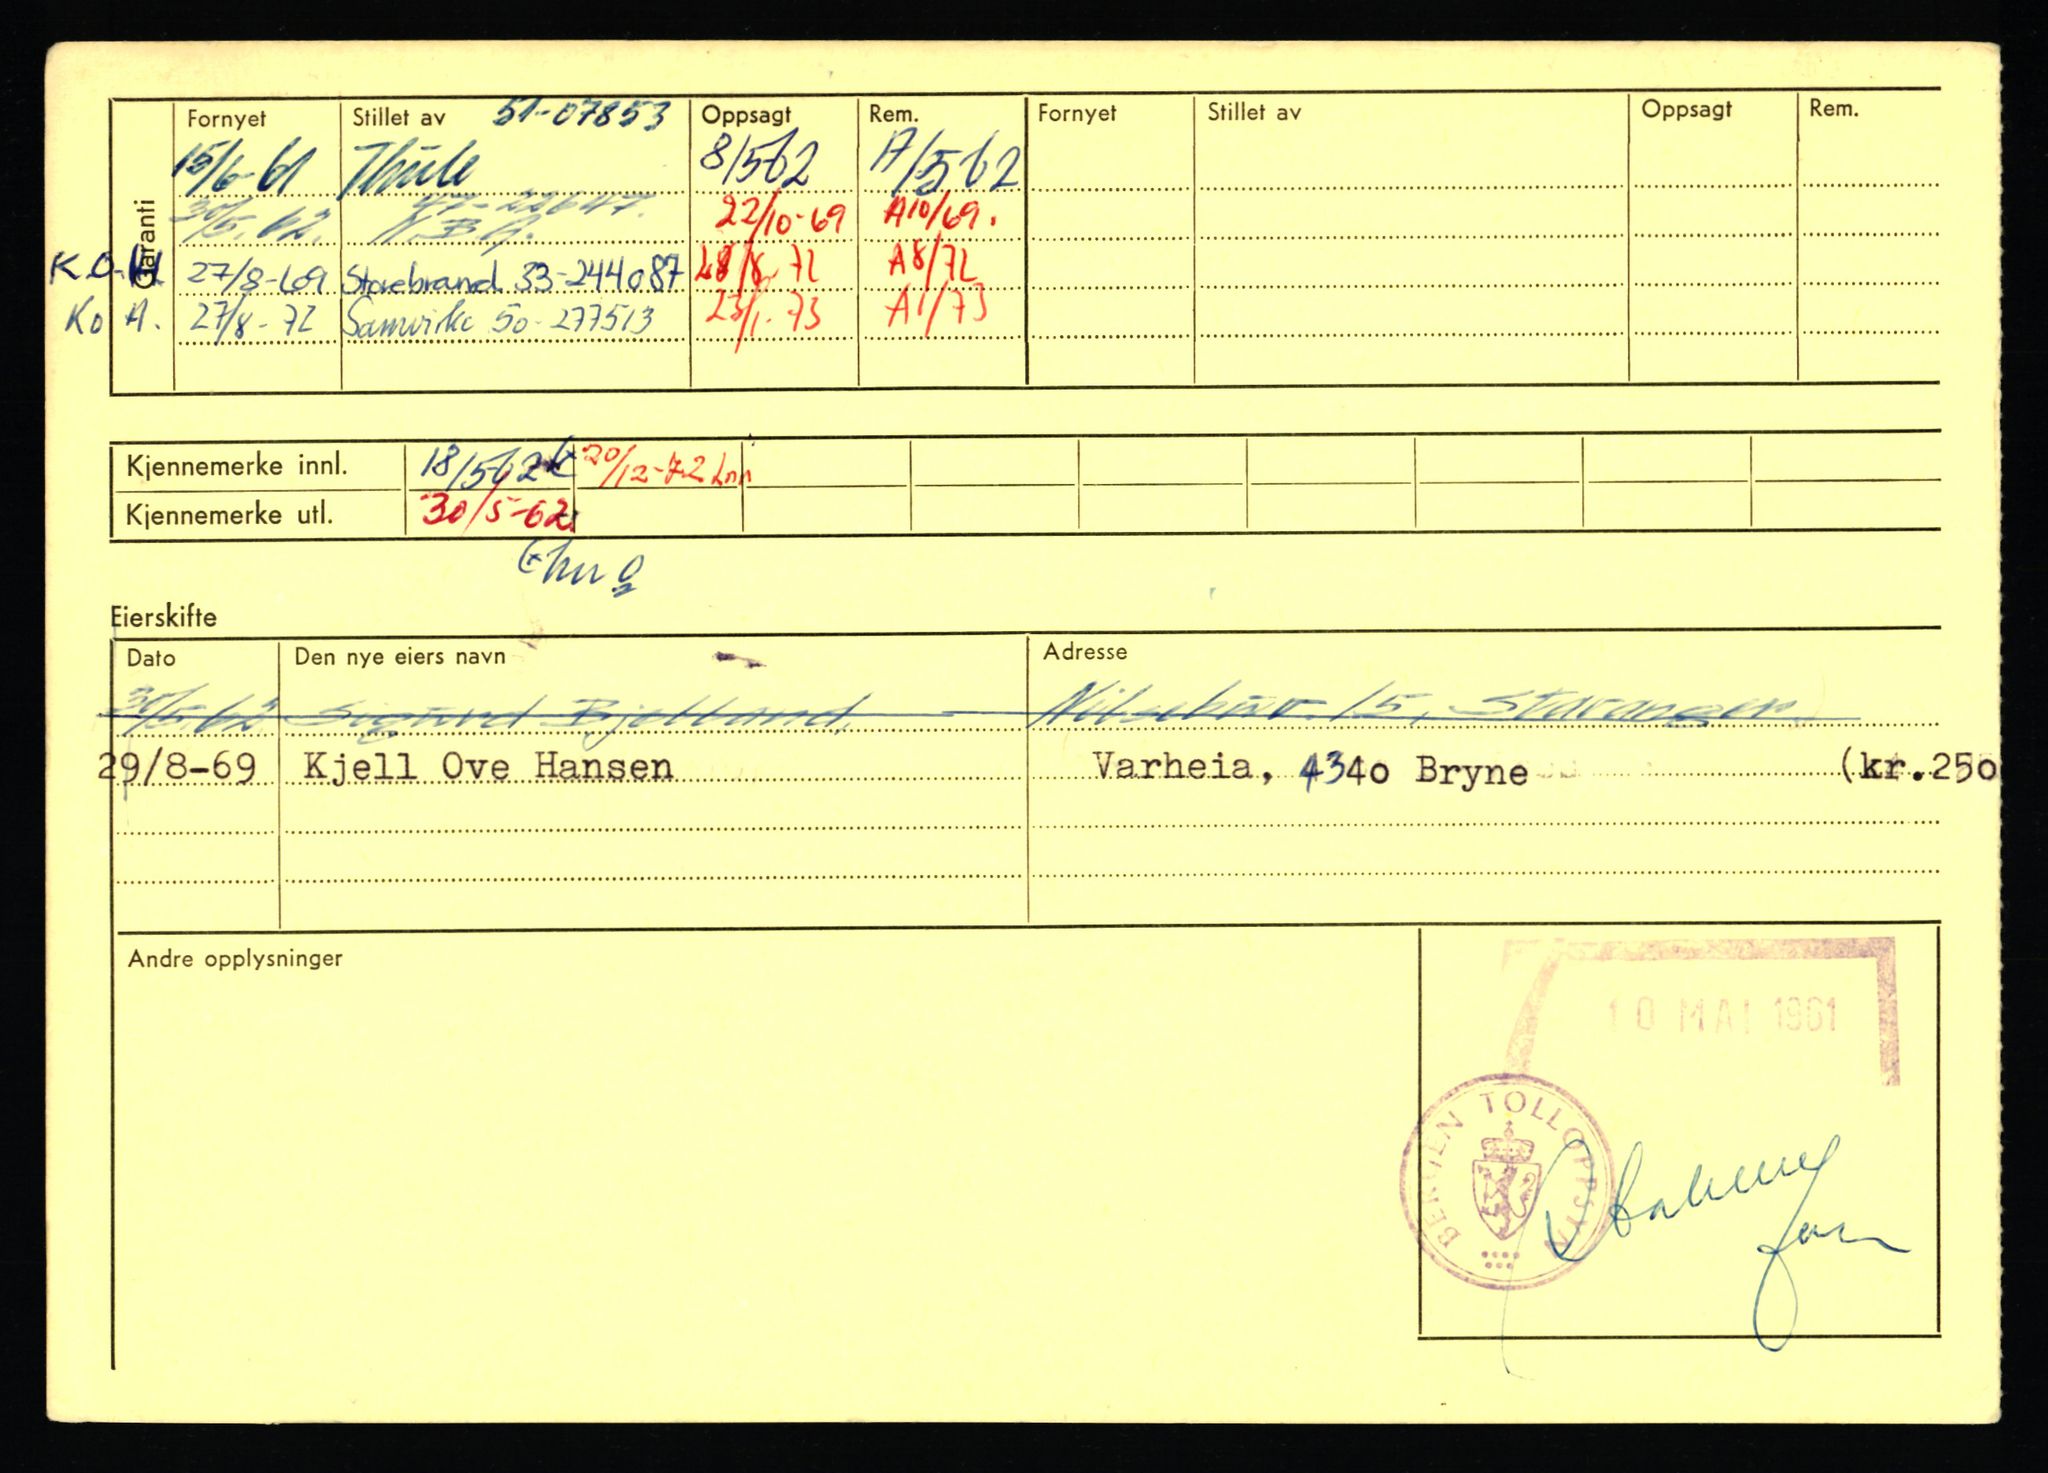 Garanti
Fornyet Stillet av 51-07853 Oppsagt Rem. Fornyet Stillet av Oppsagt Rem.
15/6-61 Thule 8/5 62 A/5 62
30/5.62. 47-22647. N.B.G. 22/10-69 A10/69.
K.O.H 27/8-69 Storebrand 33-244087 28/8-72 A8/72
Ko A. 27/8-72 Samvirke 50-277513 23/1-73 A1/73
Kjennemerke innl. 18/5 62 20/12-72 Lnn
Kjennemerke utl. 30/5-62
Eierskifte
Dato Den nye eiers navn Adresse
30/5.62 Sigurd Bjelland. Nilsebuv. 15, Stavanger.
29/8-69 Kjell Ove Hansen Varheia, 4340 Bryne (kr.250
Andre opplysninger
10 MAI 1961
BERGEN TOLLOPPSYN